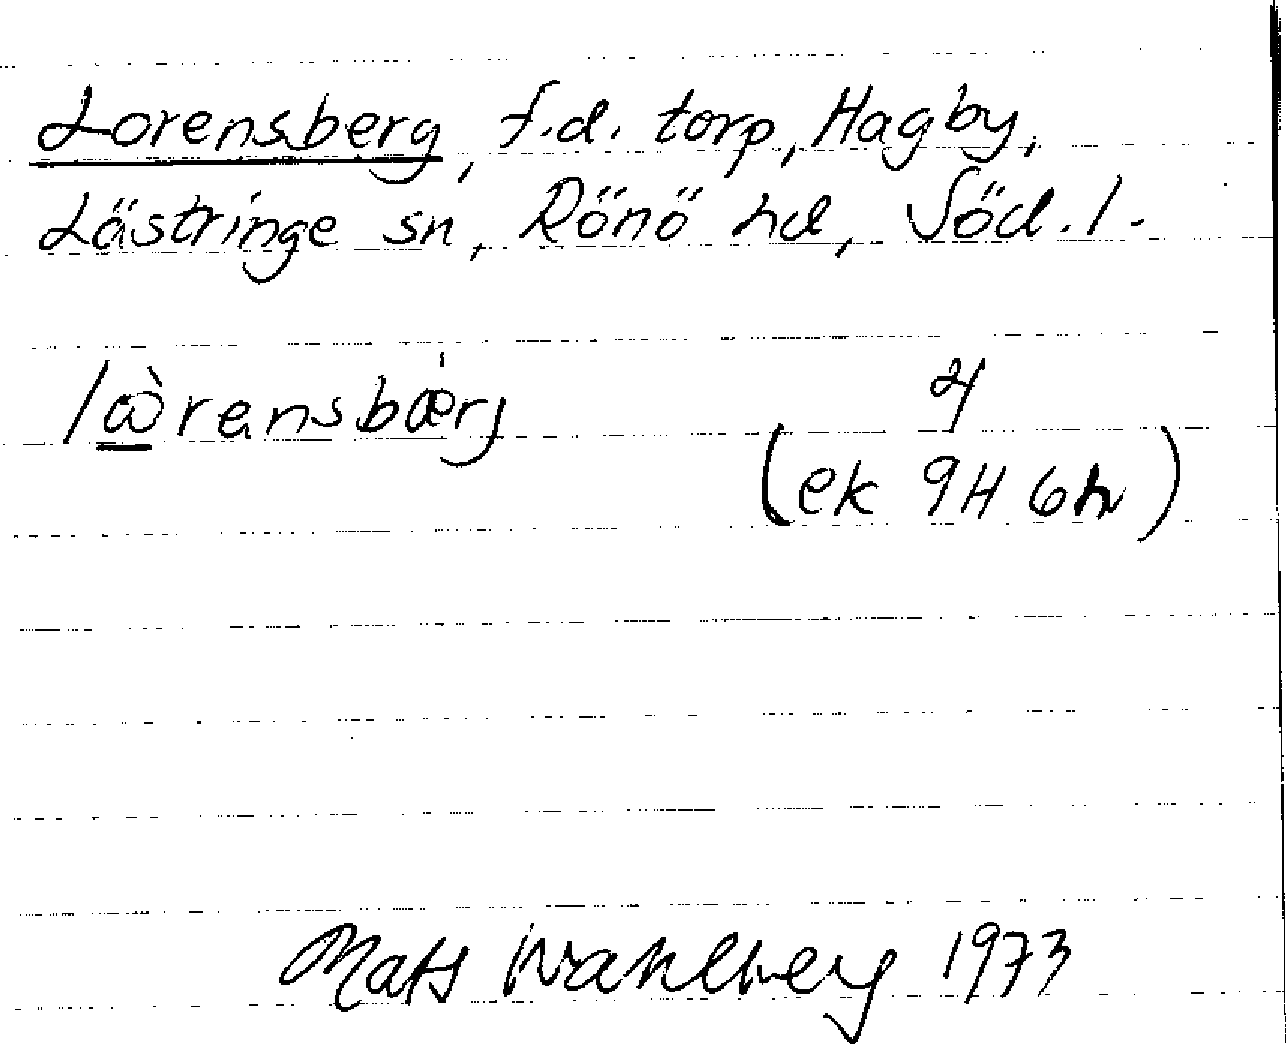 Lorensberg, f.d. torp, Hagby,
Lästringe sn, Rönö hd, Söd. l.
lὼrensbæ̍rj
(ek 9H 6h)
Mats Wahlberg 1973